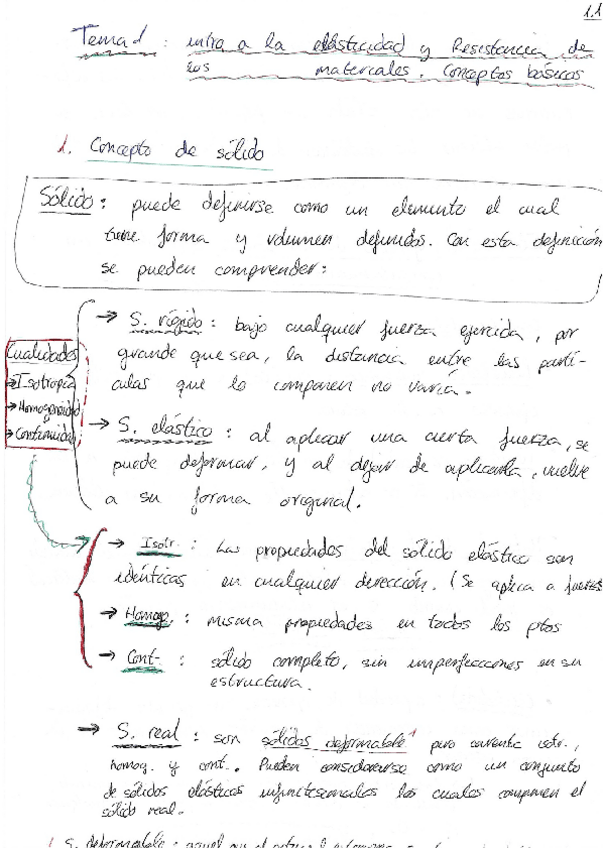 1.1
Tema 1 : intro a la elasticidad y Resistencia de
los materiales. Conceptos básicos
1. Concepto de sólido
Sólido: puede definirse como un elemento el cual
tiene forma y volumen definidos. Con esta definición
se pueden comprender:
→ S. rígido: bajo cualquier fuerza ejercida, por
grande que sea, la distancia entre las partí-
culas que lo componen no varía.
Cualidades
→ Isotropía
→ Homogeneidad
→ Continuidad
→ S. elástico: al aplicar una cierta fuerza, se
puede deformar, y al dejar de aplicarla, vuelve
a su forma original.
→ Isotr.: Las propiedades del sólido elástico son
idénticas en cualquier dirección. (Se aplica a fuerzas
→ Homog.: misma propiedades en todos los ptos
→ Cont.: sólido completo, sin imperfecciones en su
estructura.
→ S. real: son sólidos deformable¹ pero isotr.,
homog. y cont.. Pueden considerarse como un conjunto
de sólidos elásticos infinitesimales los cuales componen el
sólido real.
1 S. deformable: aquel